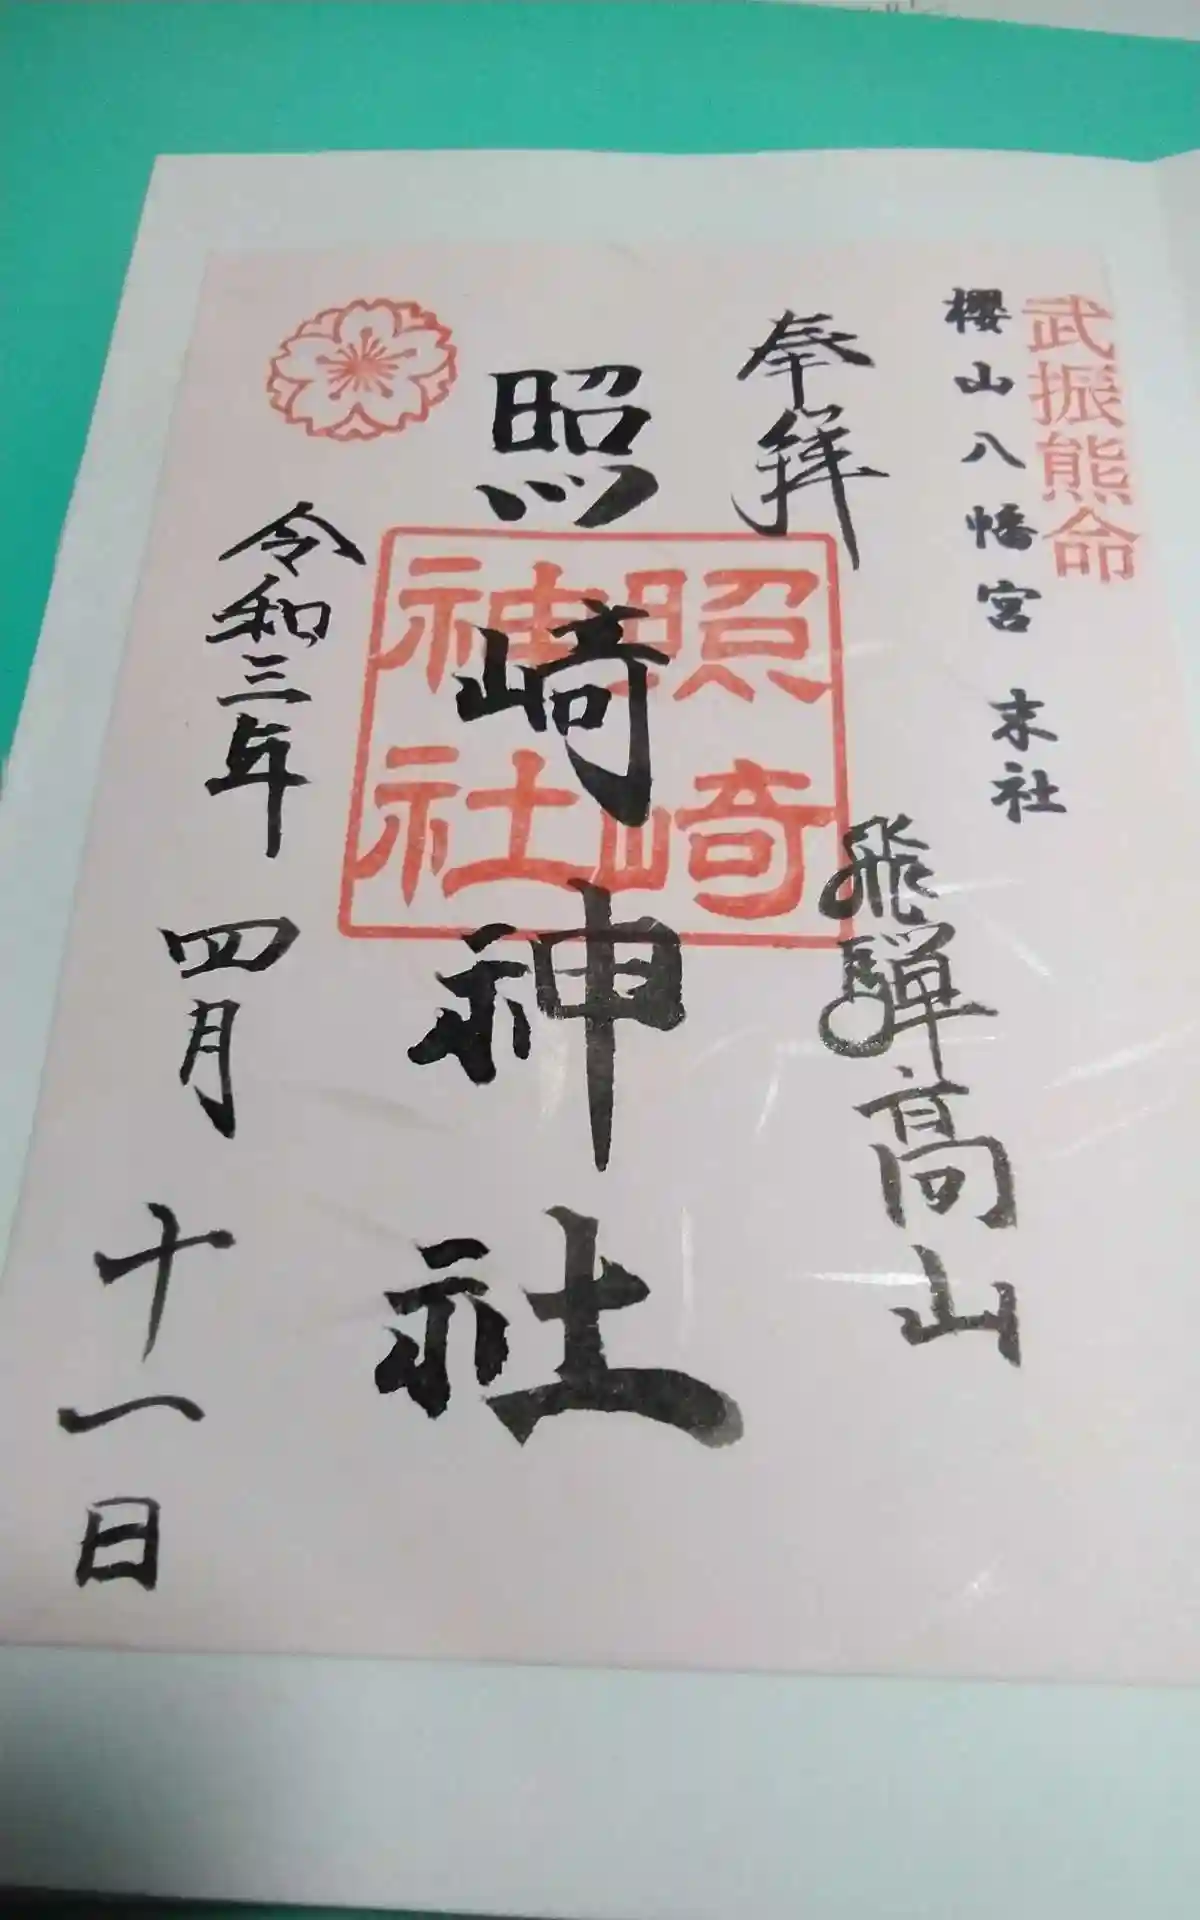 武振熊命
櫻山八幡宮 末社
奉拝
飛騨高山
照崎神社
照崎
神社
令和三年 四月 十一日